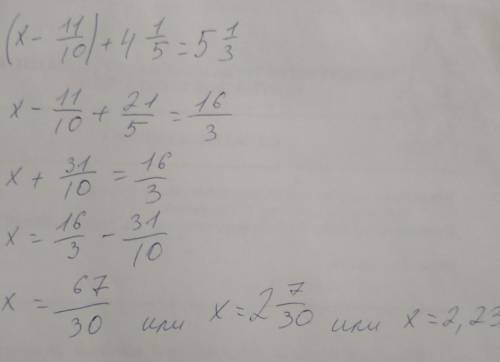 (x - 11/10) + 4 1/5 = 5 1/3
x - 11/10 + 21/5 = 16/3
x + 31/10 = 16/3
x = 16/3 - 31/10
x = 67/30 или x = 2 7/30 или x = 2,23